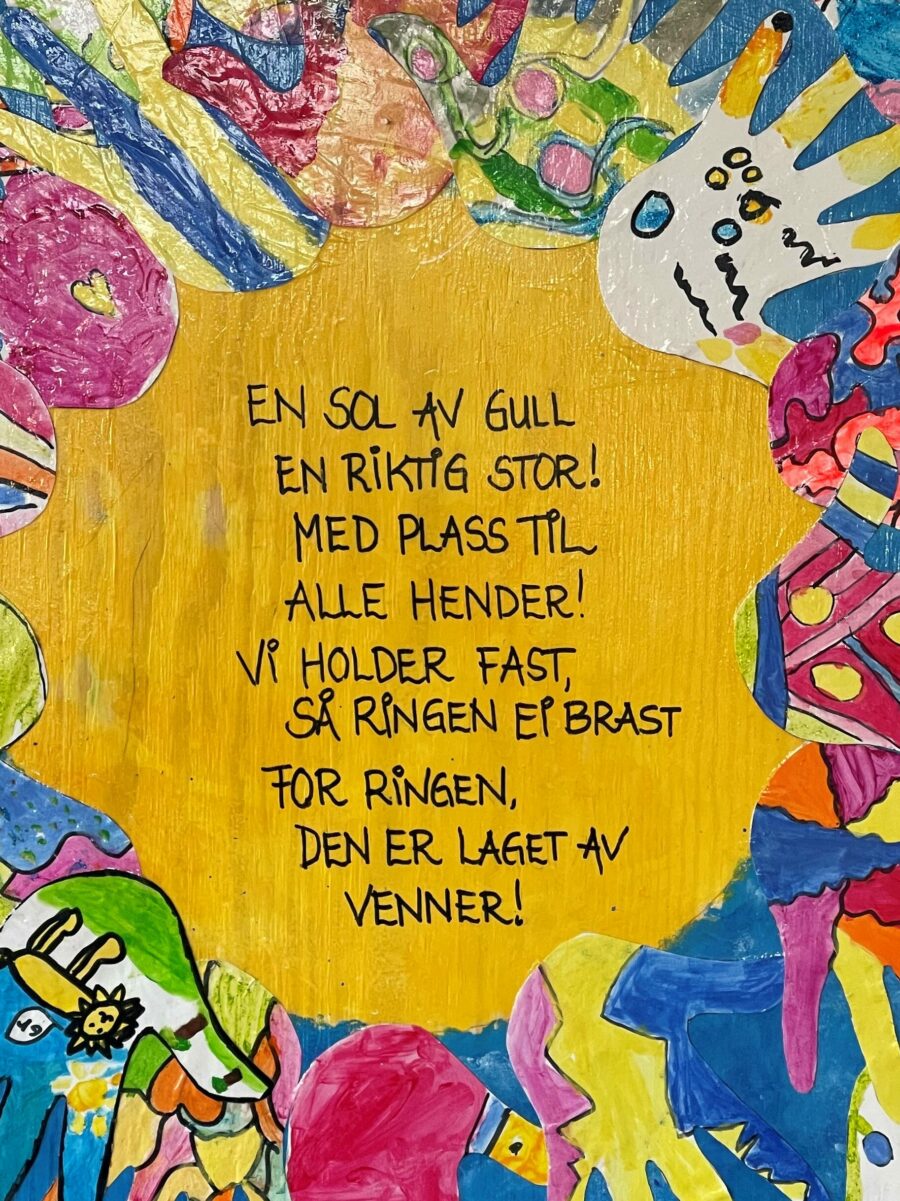 EN SOL AV GULL
EN RIKTIG STOR!
MED PLASS TIL
ALLE HENDER!
VI HOLDER FAST,
SÅ RINGEN EI BRAST
FOR RINGEN,
DEN ER LAGET AV
VENNER!